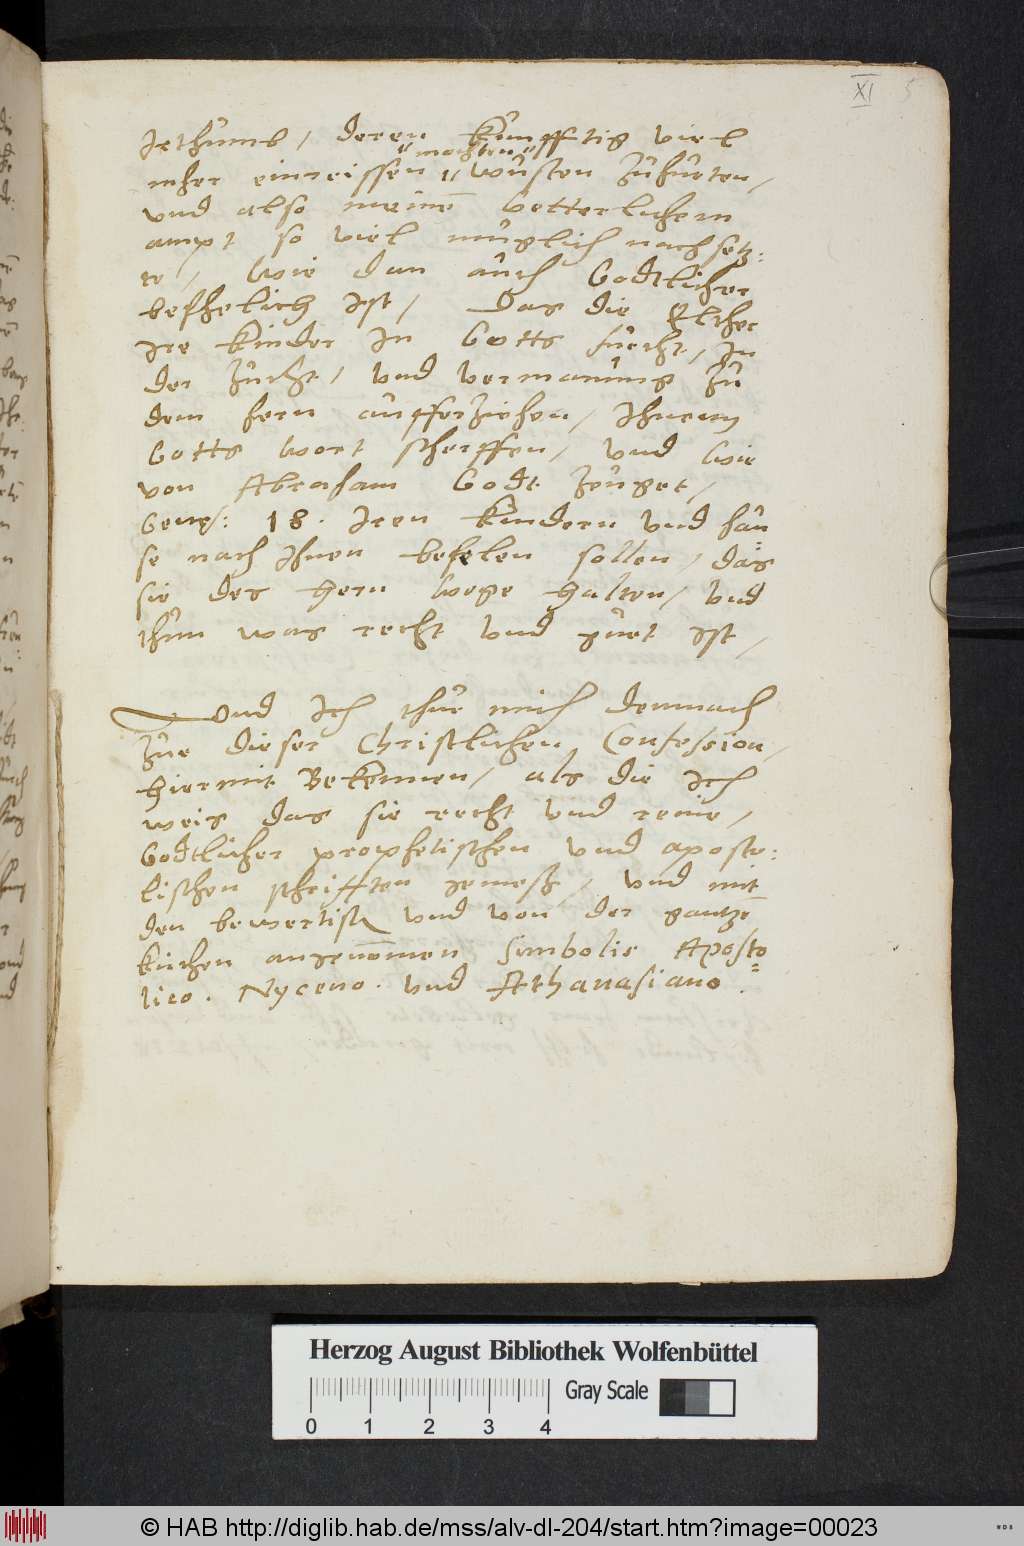 XI 5
Irthumb / deren künfftig viel
mher einreissen „mochten„ wüsten zufürten /
und also meinē vetterlichem
ampt so viel müglich nachsetz:
te / Wie dan auch Godtlicher
beshelich Ist / Das die Elther
Ire kinder In Gotts furcht / In
der zucht / und vermanung zu
dem hern aufferziehen / Ihnenn
Gotts Wort scherffen / und Wie
von Abraham Godt zeuget /
Genes: 18. Iren kindern und hau
se nach Ihnen befelen sollen / das
sie des hern Wege halten / Und
thun was recht Und guet Ist /
Und Ich thue mich demnach
zue dieser Christlichen Confession /
hiermit Bekennen / als die Ich
weis das sie recht Und reine /
Godtlicher prophetischen Und aposto:
lischen schrifften gemeß / Und mit
den bewertist Und von der gantzē
kirchen angenommen Simbolis Aposto
lico. Nyceno. Und Athanasiano.
Herzog August Bibliothek Wolfenbüttel
Gray Scale
0 1 2 3 4
© HAB http://diglib.hab.de/mss/alv-dl-204/start.htm?image=00023